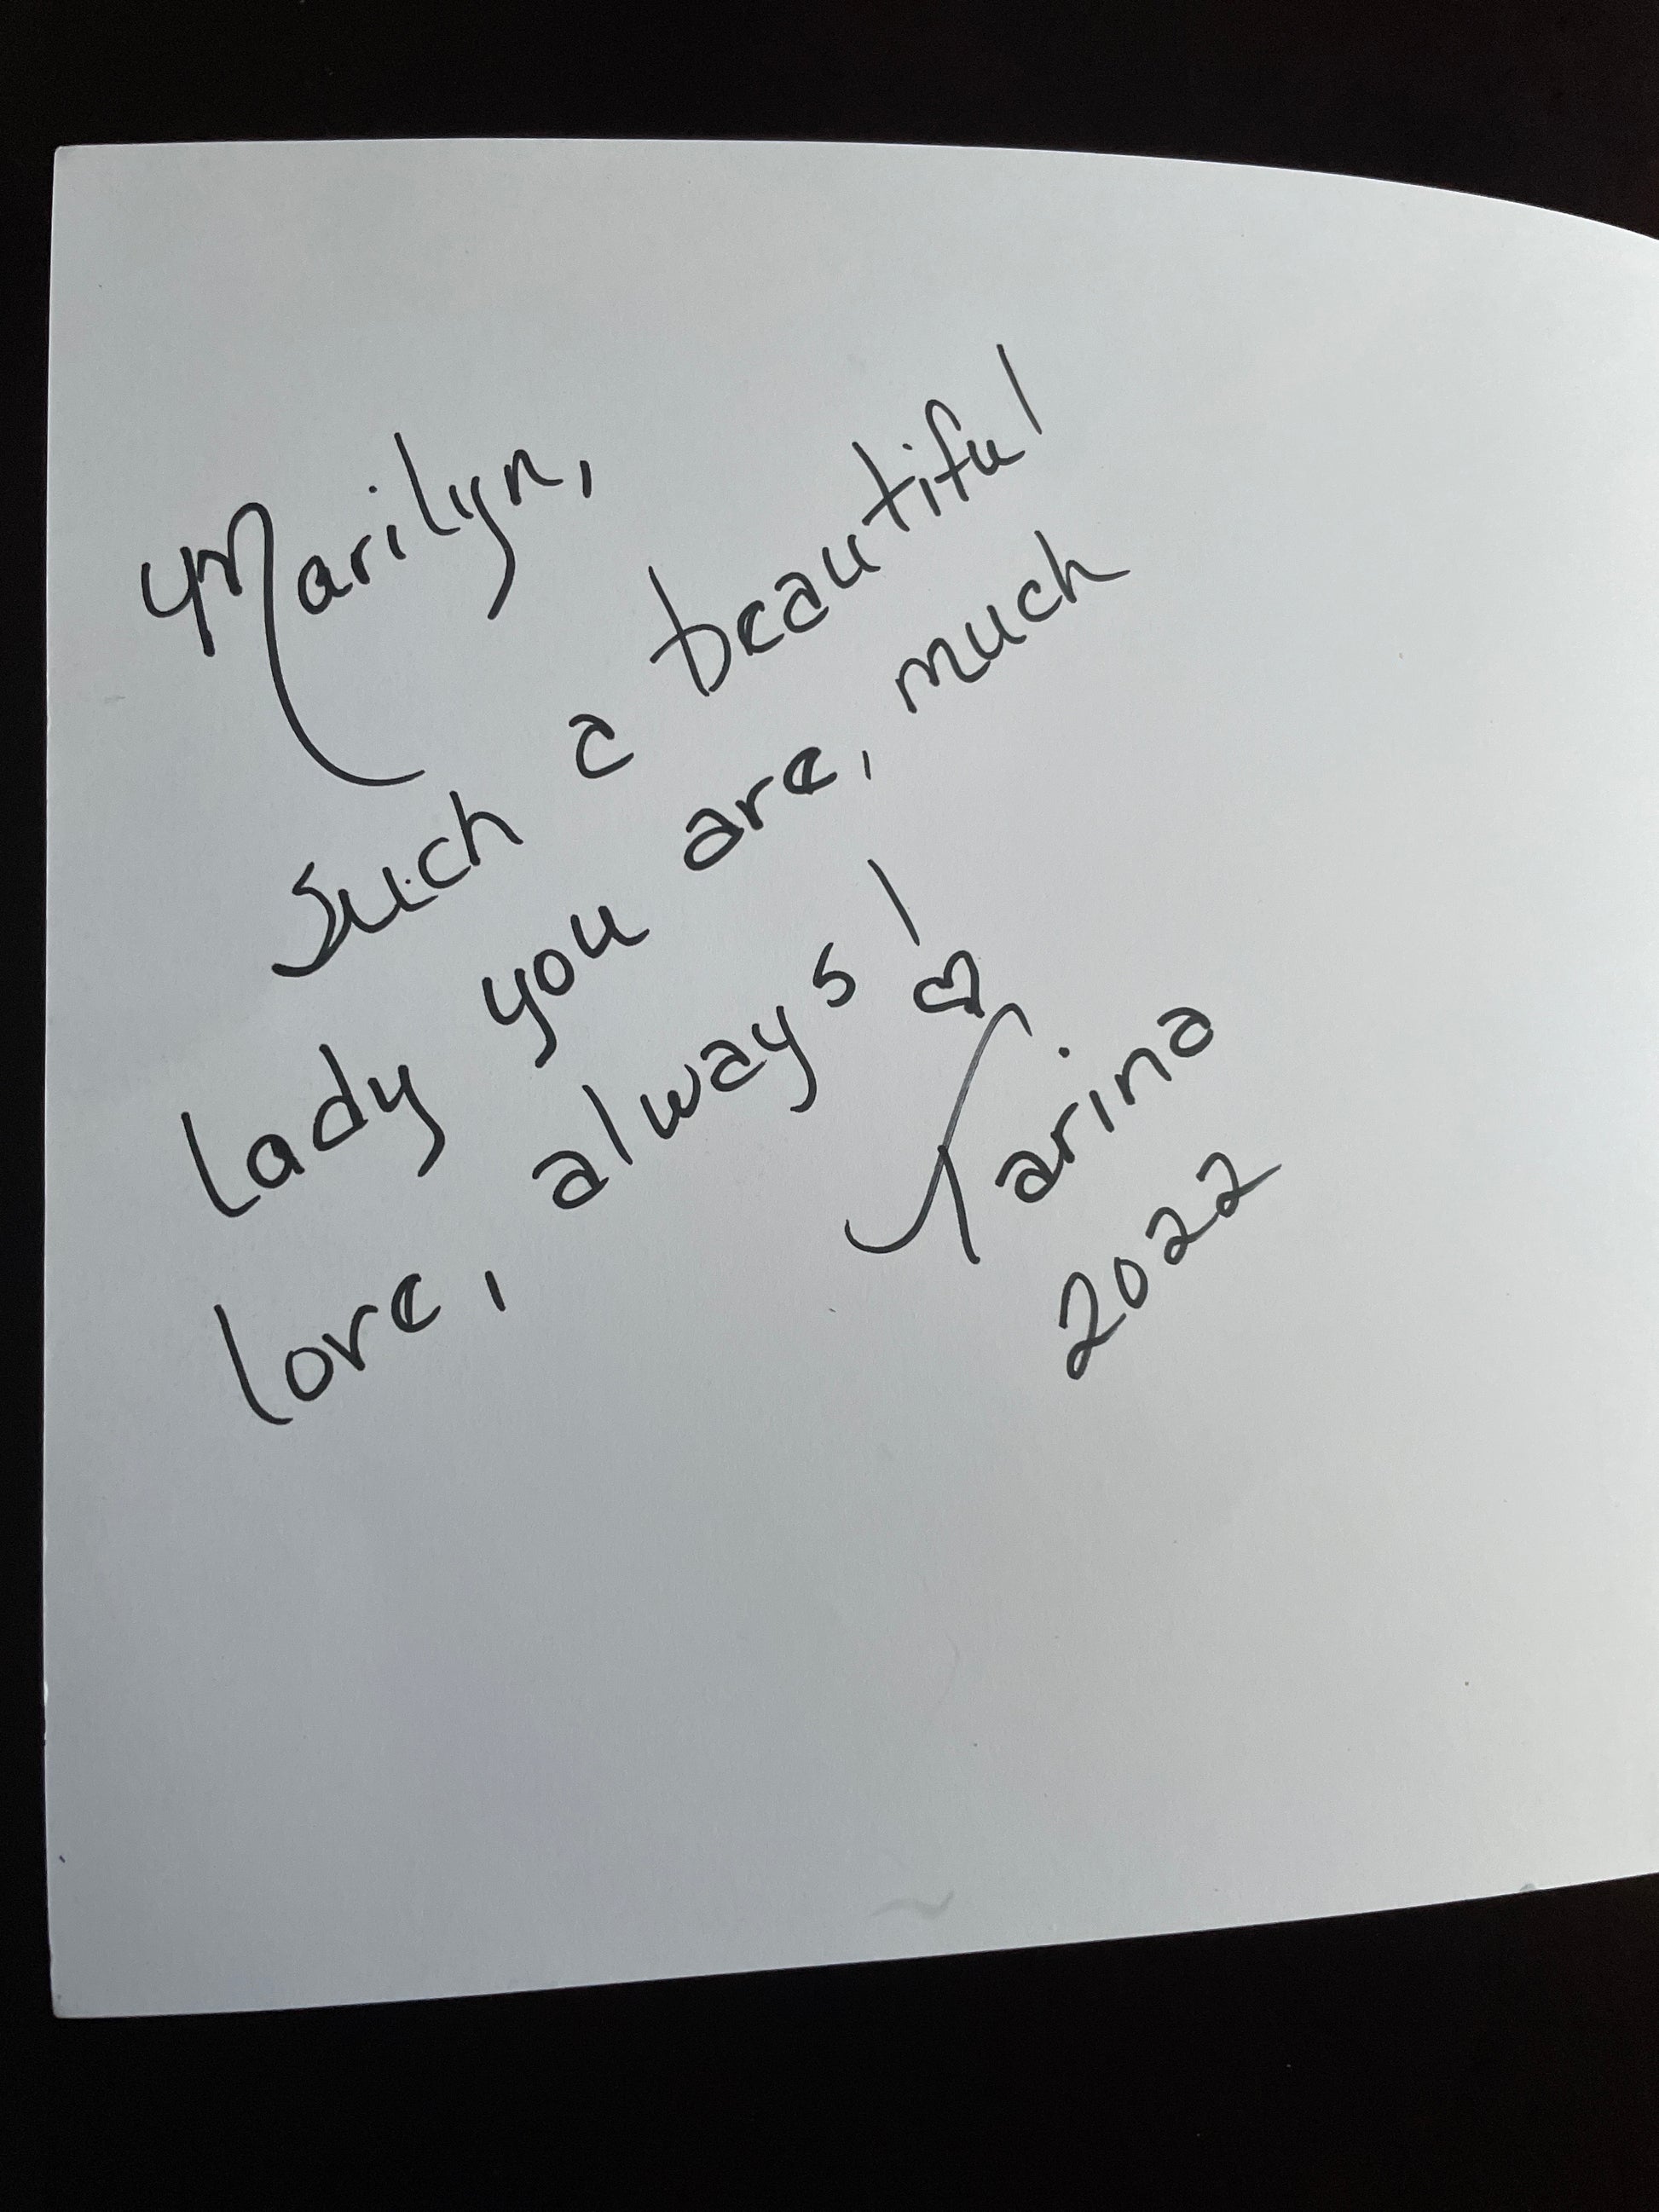 Marilyn,
Such a beautiful
lady you are, much
love, always! ♡
Tarina
2022